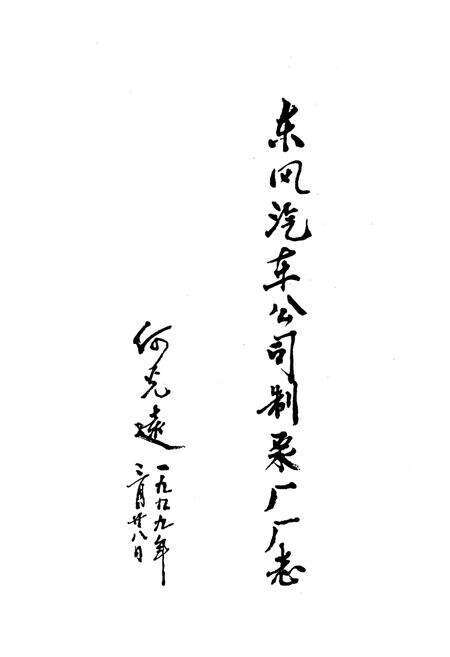 东风汽车公司制泵厂厂志
何光远
一九九九年
三月廿八日